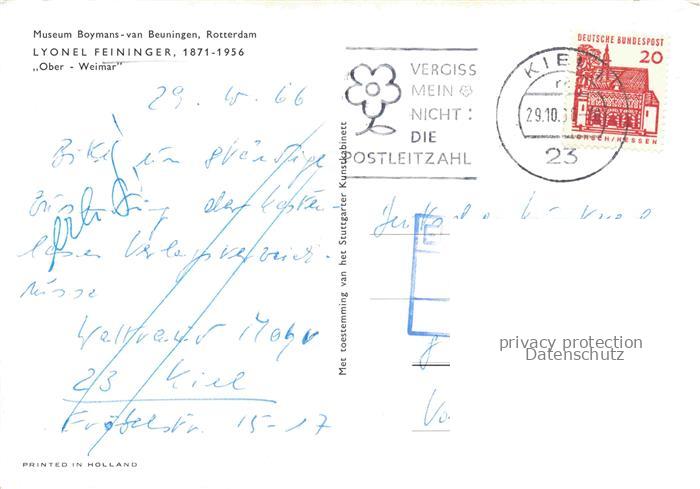 Museum Boymans-van Beuningen, Rotterdam
LYONEL FEININGER, 1871-1956
„Ober - Weimar"
29. 10. 66
Bitte um günstige
Zusendung der kosten-
losen Verlagsverzeich-
nisse
Waltraud Mohr
23 Kiel
Fröbelstr. 15-17
PRINTED IN HOLLAND
Met toestemming van het Stuttgarter Kunstkabinett
VERGISS
MEIN
NICHT:
DIE
POSTLEITZAHL
KIEL
29.10.66
23
DEUTSCHE BUNDESPOST
20
LORSCH/HESSEN
privacy protection
Datenschutz